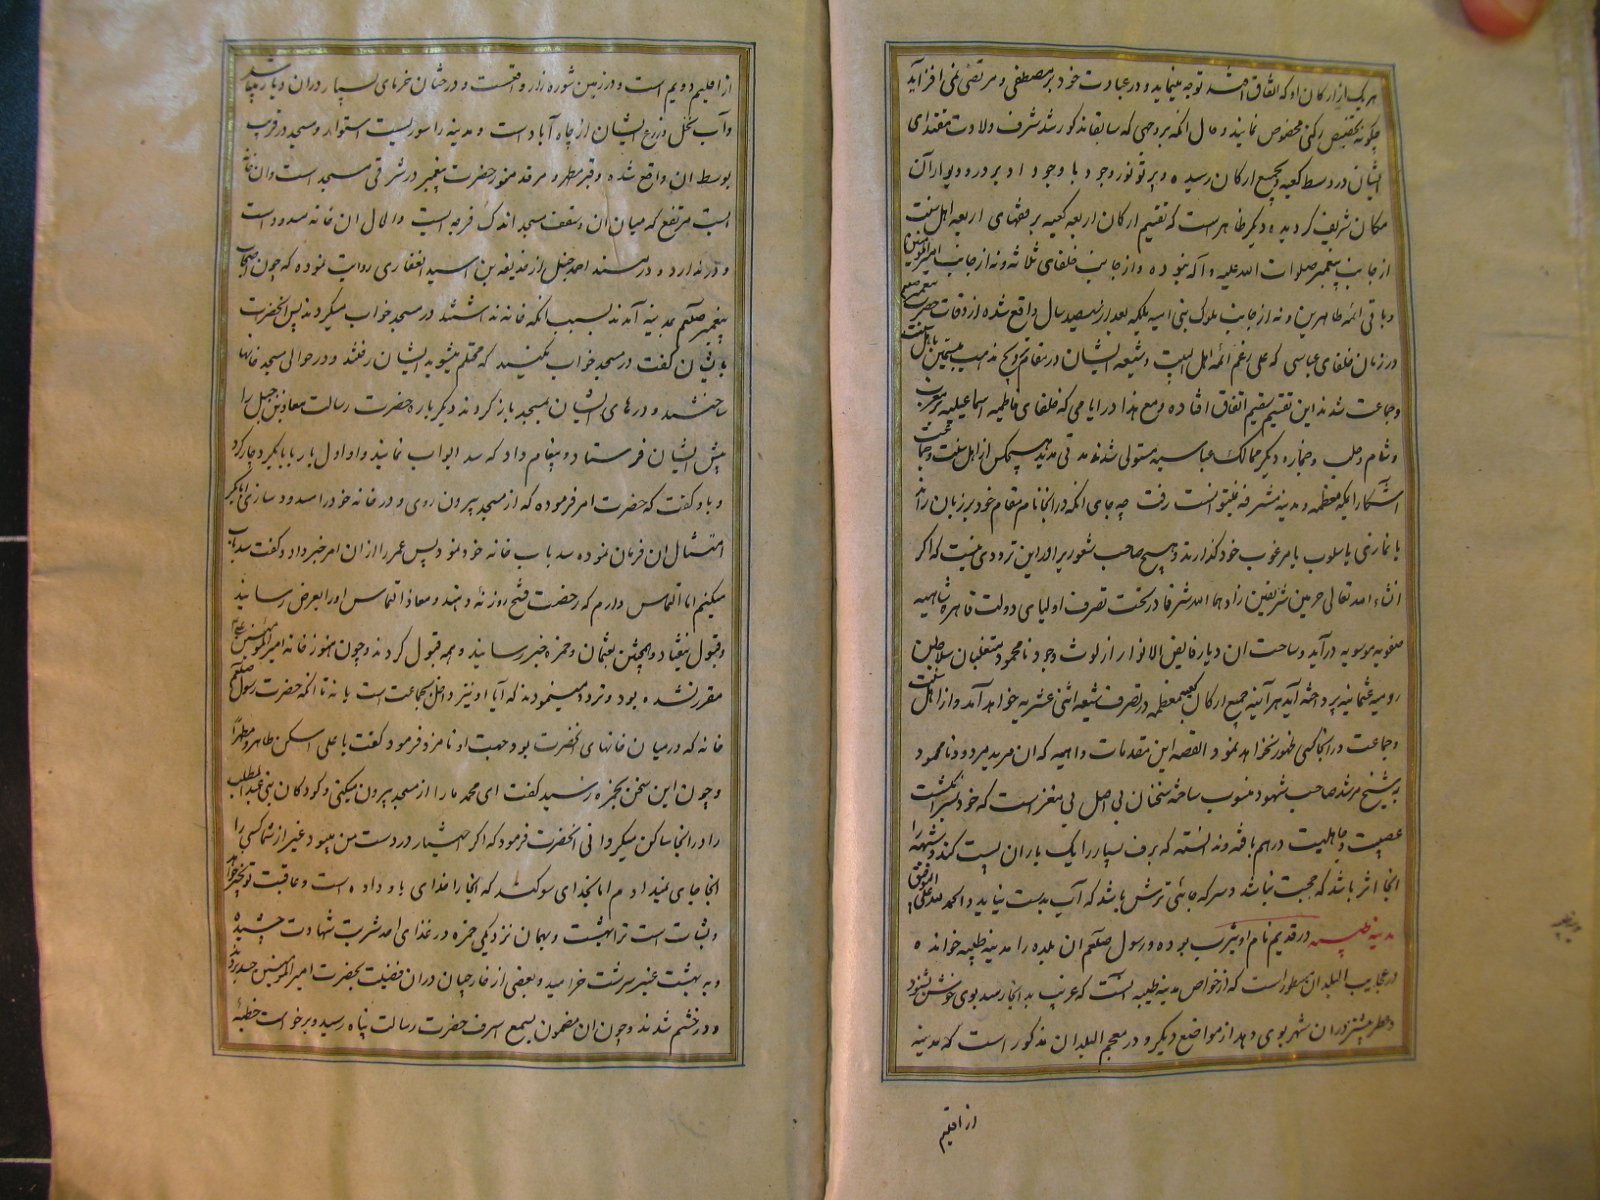 هر یک از ارکان او که اتفاق افتد توجه مینماید و در عبادت خود بر مصطفی و مرتضی نمی افزاید
چگونه تخصیص رکنی مخصوص نمایند و حال آنکه بروجهی که سابقا مذکور شد شرف ولادت مقتدای
ایشان در وسط کعبه و بجمیع ارکان رسیده و پرتو نور وجود با وجود او بر در و دیوار آن
مکان شریف گردیده و دیگر ظاهرست که تقسیم ارکان اربعه کعبه بر فقهای اربعه اهل سنت
از جانب پیغمبر صلوات الله علیه و آله نبوده و از جانب خلفای ثلاثه و نه از جانب امیر المؤمنین
و باقی ائمه طاهرین و نه از جانب ملوک بنی امیه بلکه بعد از سیصد سال واقع شده از وفات حضرت پیغمبر صلعم
در زمان خلفای عباسی که علی رغم ائمه اهل البیت و شیعه ایشان در مقام ترویج مذهب اهل سنت
و جماعت شدند این تقسیم سقیم اتفاق افتاده و مع هذا در ایامی که خلفای فاطمیه اسماعیلیه بر مغرب
و شام و حلب و دیگر ممالک عباسیه مستولی شدند مدتی مدید هیچکس از اهل سنت و جماعت
آشکارا بمکه معظمه و مدینه مشرفه نمیتوانست رفت چه جای آنکه در آنجا نام مقام خود بر زبان راند
یا نمازی باسلوب نامرغوب خود گذارند و هیچ صاحب شعور را در این ترددی نیست که اگر
انشاء الله تعالی حرمین شریفین زادهما الله شرفا در تحت تصرف اولیای دولت قاهره شاهیه
صفویه موسویه درآید و ساحت آن دیار فایض الانوار از لوث وجود نامحمود متغلبان سلاطین
رومیه عثمانیه پرداخته آید هر آینه جمیع ارکان کعبه معظمه در تصرف شیعه اثنی عشریه خواهد آمد و از اهل سنت
و جماعت در آنجا کسی ظهور نخواهد نمود القصه این مقدمات واهیه که آن مرید مردود نامحمود
به شیخ مرشد صاحب شهود منسوب ساخته سخنان بی اصل بی مغز است که خود بسر انگشت
عصبیت و جاهلیت در هم بافته و ندانسته که برف بسیار را یک باران پست کند و شبهه را
آنجا اثر باشد که حجت نباشد و سرکه جائی ترش باشد که آب بدست نیاید و الحمد لله علی التوفیق
مدینه طیبه در قدیم نام او یثرب بوده و رسول صلعم آن بلده را مدینه طیبه خوانده
در عجایب البلدان مسطور است که از خواص مدینه طیبه آنست که غریب بدانجا رسد بوی خوش شنود
و عطر بیشتر در آن شهر بوی دهد از مواضع دیگر و در معجم البلدان مذکور است که مدینه
از اقلیم
از اقلیم دویم است و در زمین شوره زار واقعست و درختان خرمای بسیار در آن دیار میباشد
و آب نخل و زرع ایشان از چاه آبادست و مدینه را سوریست استوار و مسجد در قرب
بوسط آن واقع شده و قبر مطهر و مرقد منور حضرت پیغمبر در شرقی مسجد است و آن خانه
ایست مرتفع که میان آن و سقف مسجد اندک فرجه ایست و الحال آن خانه مسدود است
و در ندارد و در مسند احمد حنبل از حذیفه بن اسید الغفاری روایت نموده که چون اصحاب
پیغمبر صلعم بمدینه آمدند بسبب آنکه خانه نداشتند در مسجد خواب میکردند پس آنحضرت
بایشان گفت در مسجد خواب نکنید که محتلم میشوید ایشان رفتند و در حوالی مسجد خانها
ساختند و درهای ایشان بمسجد باز کردند دیگر باره حضرت رسالت معاذ بن جبل را
پیش ایشان فرستاد و پیغام داد که سد ابواب نمایند و او اول بار با ابابکر دچار کرد
و باو گفت که حضرت امر فرموده که از مسجد بیرون روی و در خانه خود را مسدود سازی ابابکر
امتثال آن فرمان نموده سد باب خانه خود نمود پس عمر را از آن امر خبر داد و گفت سد باب
میکنم اما التماس دارم که رخصت فتح روزنه دهید و معاذ التماس او را بعرض رسانید
و قبول نیفتاد و همچنین بعثمان و حمزه خبر رسانید و همه قبول کردند و چون هنوز خانه امیر المؤمنین علی
مقرر نشده بود و تردد مینمودند که آیا او نیز داخل جماعت است یا نه تا آنکه حضرت رسول صلعم
خانه که در میان خانهای آنحضرت بود جهت او نامزد فرمود گفت یا علی اسکن طاهرا و مطهرا
و چون این سخن بحمزه رسید گفت ای محمد ما را از مسجد بیرون میکنی و کودکان بنی عبد المطلب
را در آنجا ساکن میگردانی آنحضرت فرمود که اگر اختیار در دست من میبود غیر از شما کسی را
آنجا جای نمیدادم اما بخدای سوگند که آنجا را خدای باو داده است و عاقبت تو بخیر خواهد
و ثبات است ترا بهشت و بهمان نزدیکی حمزه در غذای احد شربت شهادت چشیده
و به بهشت عنبر سرشت خرامید و بعضی از خارجیان در آن فضیلت بحضرت امیر المؤمنین حسد بردند
و در خشم شدند و چون آن مضمون بسمع اشرف حضرت رسالت پناه رسید و برخواست خطبهٔ